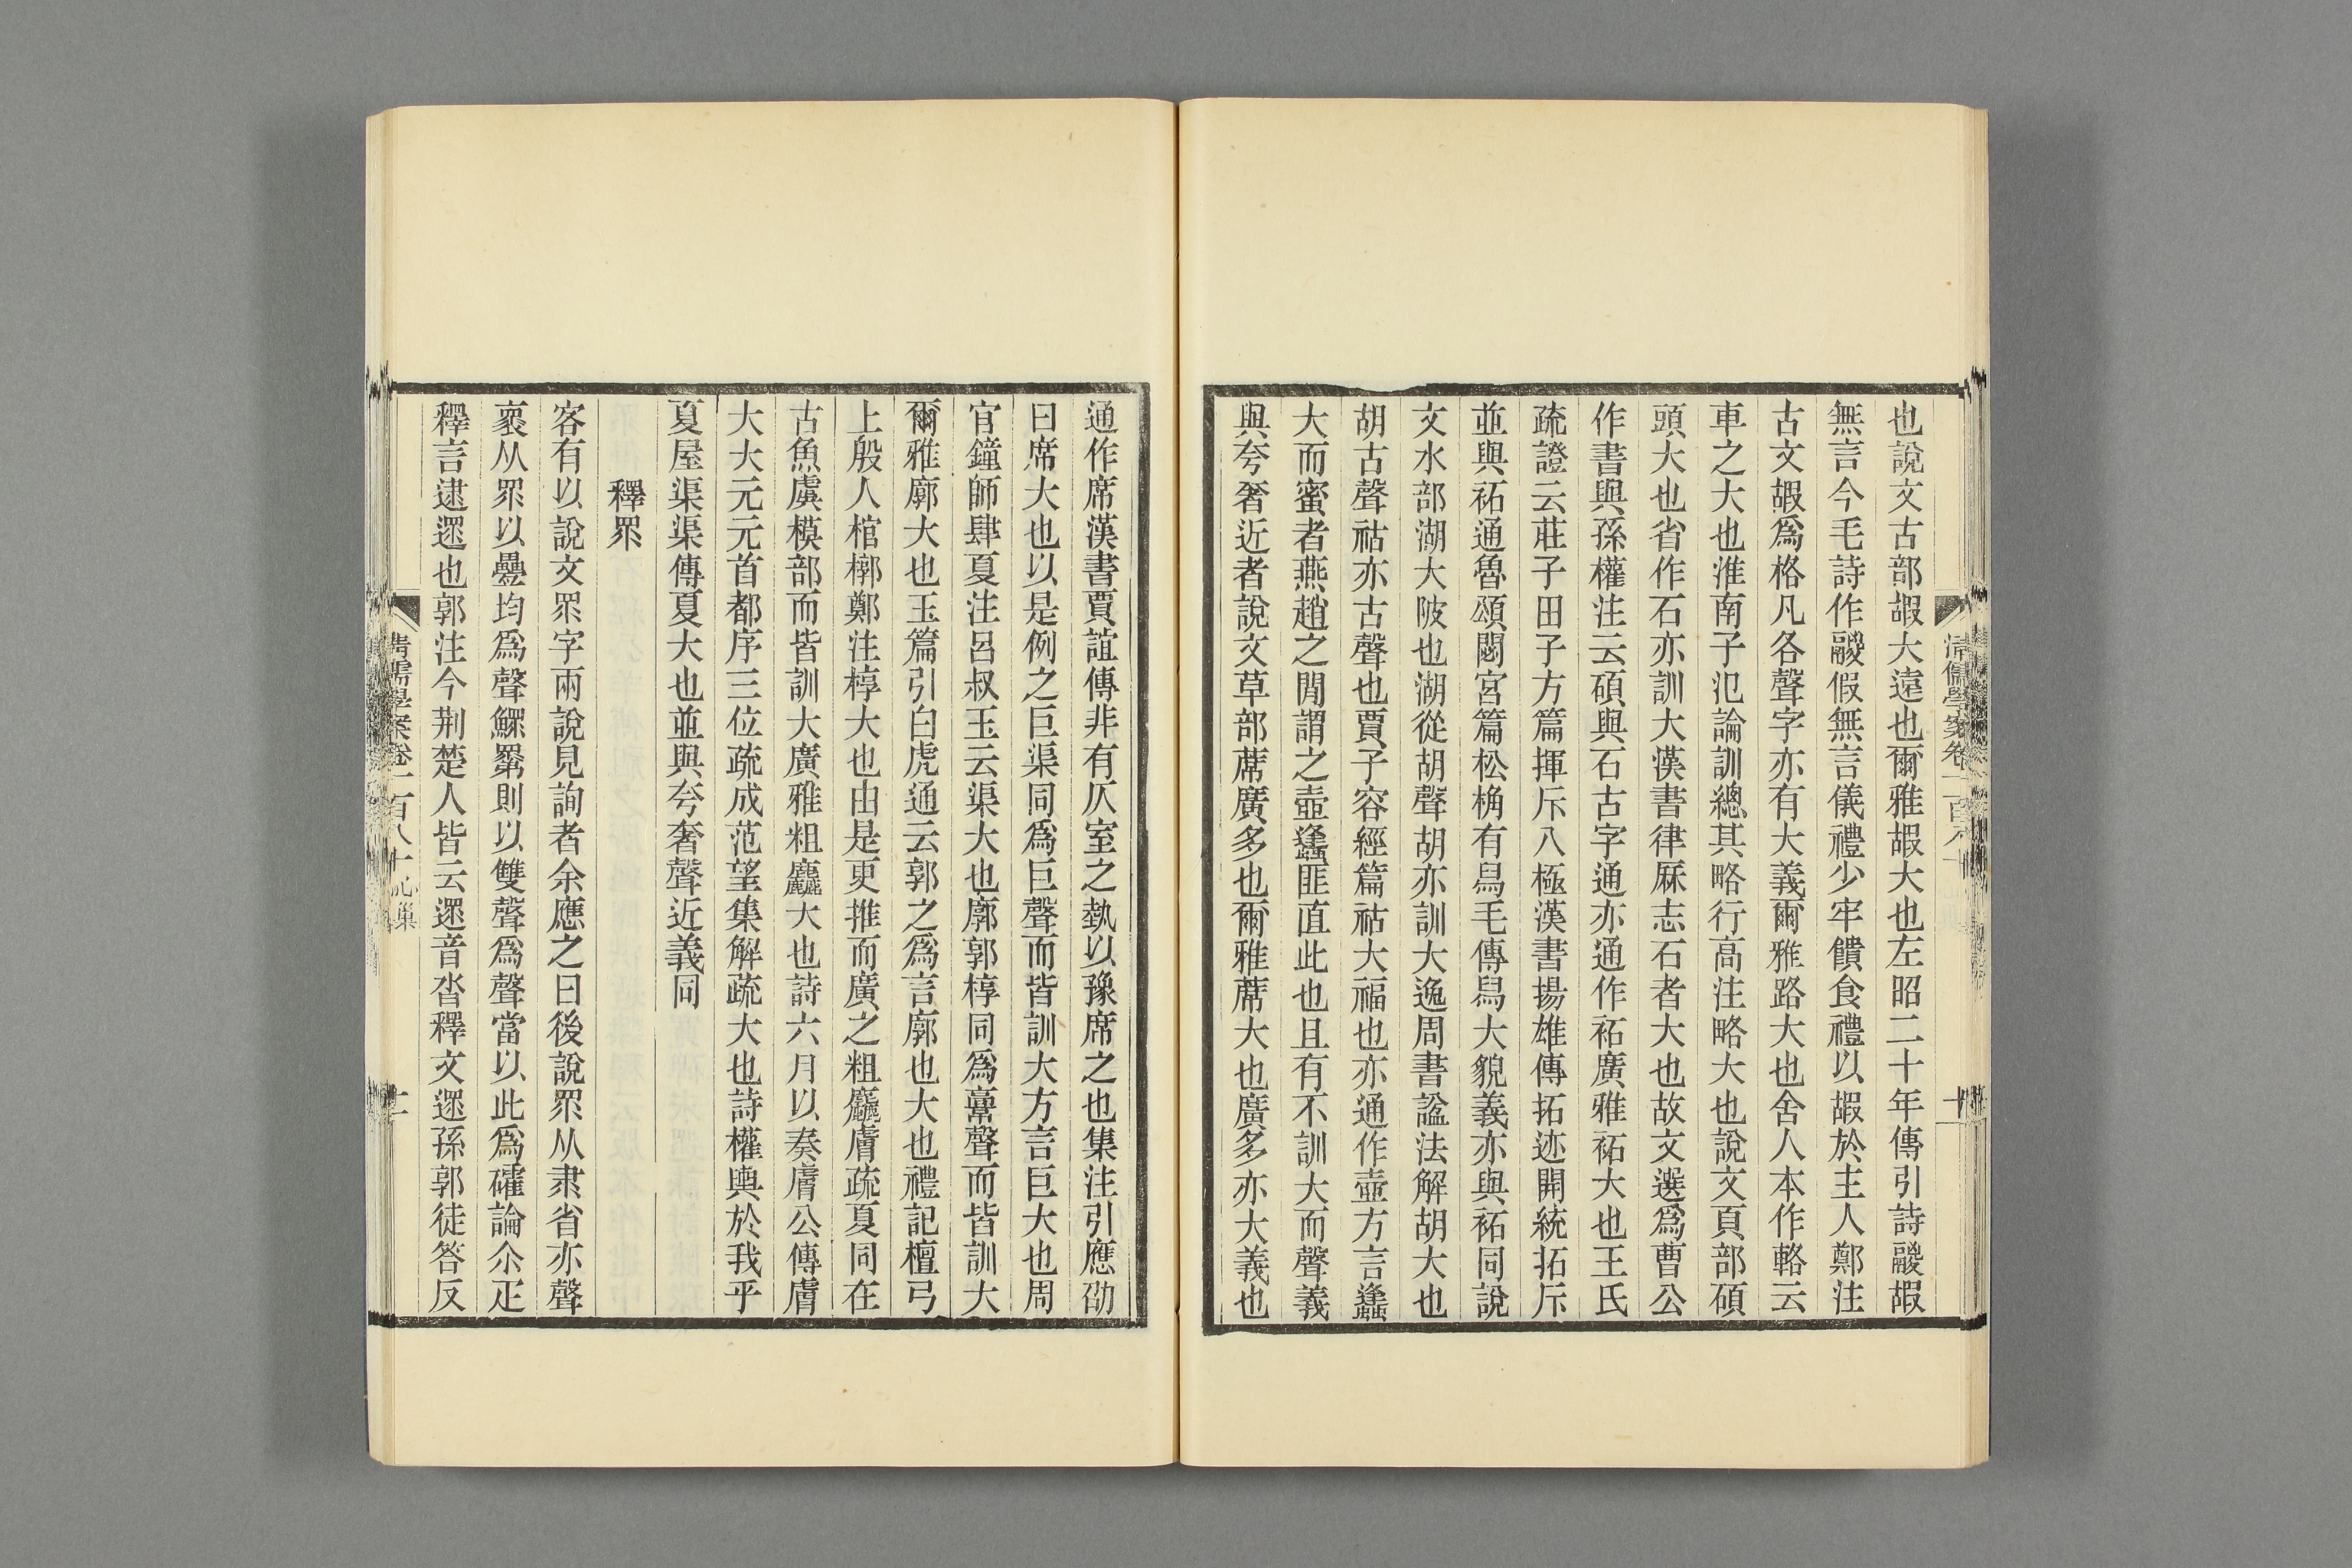 也說文古部嘏大遠也爾雅嘏大也左昭二十年傳引詩鬷嘏
無言今毛詩作鬷假無言儀禮少牢饋食禮以嘏於主人鄭注
古文嘏爲格凡各聲字亦有大義爾雅路大也舍人本作輅云
車之大也淮南子氾論訓總其略行高注略大也說文頁部碩
頭大也省作石亦訓大漢書律厤志石者大也故文選爲曹公
作書與孫權注云碩與石古字通亦通作祏廣雅祏大也王氏
疏證云莊子田子方篇揮斥八極漢書揚雄傳拓迹開統拓斥
並與祏通魯頌閟宮篇松桷有舃毛傳舃大貌義亦與祏同說
文水部湖大陂也湖從胡聲胡亦訓大逸周書諡法解胡大也
胡古聲祜亦古聲也賈子容經篇祜大福也亦通作壺方言蠭
大而蜜者燕趙之閒謂之壺蠭匪直此也且有不訓大而聲義
與夸奢近者說文草部蓆廣多也爾雅蓆大也廣多亦大義也
通作席漢書賈誼傳非有仄室之埶以豫席之也集注引應劭
曰席大也以是例之巨渠同爲巨聲而皆訓大方言巨大也周
官鐘師肆夏注呂叔玉云渠大也廓郭椁同爲𩫏聲而皆訓大
爾雅廓大也玉篇引白虎通云郭之爲言廓也大也禮記檀弓
上殷人棺槨鄭注椁大也由是更推而廣之粗麤膚疏夏同在
古魚虞模部而皆訓大廣雅粗麤大也詩六月以奏膚公傳膚
大大元元首都序三位疏成范望集解疏大也詩權輿於我乎
夏屋渠渠傳夏大也並與夸奢聲近義同
釋眔
客有以說文眔字兩說見詢者余應之曰後說眔从隶省亦聲
褱从眔以疊均爲聲鰥瞏則以雙聲爲聲當以此爲礭論尒疋
釋言逮遝也郭注今荆楚人皆云遝音沓釋文遝孫郭徒答反